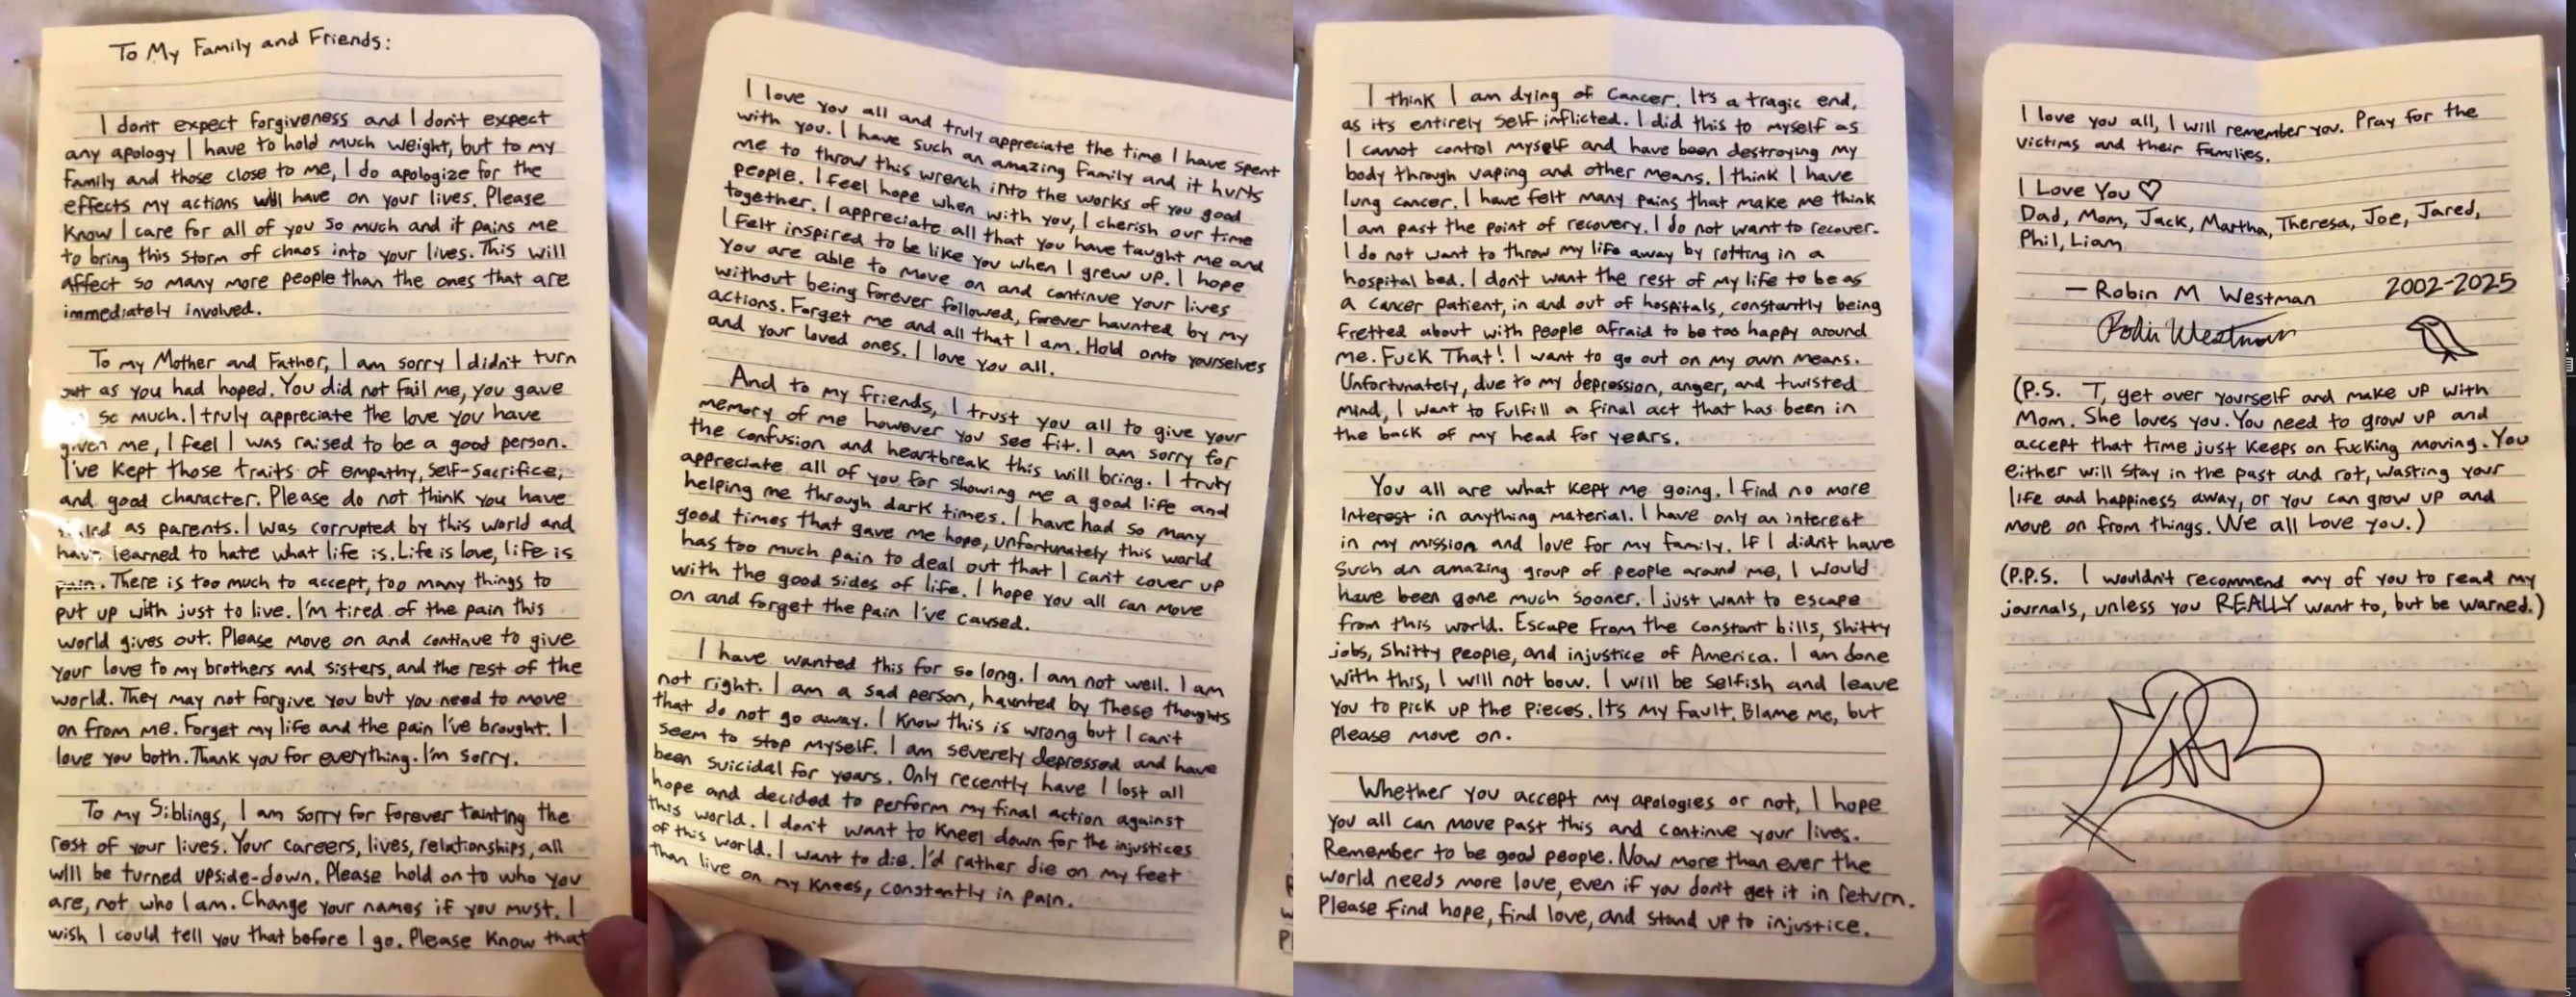 To My Family and Friends:
I don't expect forgiveness and I don't expect
any apology I have to hold much weight, but to my
family and those close to me, I do apologize for the
effects my actions will have on your lives. Please
Know I care for all of you so much and it pains me
to bring this storm of chaos into your lives. This will
affect so many more people than the ones that are
immediately involved.
To my Mother and Father, I am sorry I didn't turn
out as you had hoped. You did not fail me, you gave
so much. I truly appreciate the love you have
given me, I feel I was raised to be a good person.
I've kept those traits of empathy, self-sacrifice,
and good character. Please do not think you have
failed as parents. I was corrupted by this world and
have learned to hate what life is. Life is love, life is
pain. There is too much to accept, too many things to
put up with just to live. I'm tired of the pain this
world gives out. Please move on and continue to give
your love to my brothers and sisters, and the rest of the
world. They may not forgive you but you need to move
on from me. Forget my life and the pain I've brought. I
love you both. Thank you for everything. I'm sorry.
To my Siblings, I am sorry for forever tainting the
rest of your lives. Your careers, lives, relationships, all
will be turned upside-down. Please hold on to who you
are, not who I am. Change your names if you must. I
wish I could tell you that before I go. Please Know that
I love you all and truly appreciate the time I have spent
with you. I have such an amazing family and it hurts
me to throw this wrench into the works of you good
people. I feel hope when with you, I cherish our time
together. I appreciate all that you have taught me and
I felt inspired to be like you when I grew up. I hope
You are able to move on and continue your lives
without being forever followed, forever haunted by my
actions. Forget me and all that I am. Hold onto yourselves
and your loved ones. I love you all.
And to my friends, I trust you all to give your
memory of me however you see fit. I am sorry for
the confusion and heartbreak this will bring. I truly
appreciate all of you for showing me a good life and
helping me through dark times. I have had so many
good times that gave me hope, unfortunately this world
has too much pain to deal out that I can't cover up
with the good sides of life. I hope you all can move
on and forget the pain I've caused.
I have wanted this for so long. I am not well. I am
not right. I am a sad person, haunted by these thoughts
that do not go away. I Know this is wrong but I can't
seem to stop myself. I am severely depressed and have
been suicidal for years. Only recently have I lost all
hope and decided to perform my final action against
this world. I don't want to kneel down for the injustices
of this world. I want to die. I'd rather die on my feet
than live on my knees, constantly in pain.
I think I am dying of cancer. Its a tragic end,
as its entirely self inflicted. I did this to myself as
I cannot control myself and have been destroying my
body through vaping and other means. I think I have
lung cancer. I have felt many pains that make me think
I am past the point of recovery. I do not want to recover.
I do not want to throw my life away by rotting in a
hospital bed. I don't want the rest of my life to be as
a cancer patient, in and out of hospitals, constantly being
fretted about with people afraid to be too happy around
me. Fuck That! I want to go out on my own means.
Unfortunately, due to my depression, anger, and twisted
mind, I want to fulfill a final act that has been in
the back of my head for years.
You all are what kept me going. I find no more
interest in anything material. I have only an interest
in my mission and love for my family. If I didn't have
such an amazing group of people around me, I would
have been gone much sooner. I just want to escape
from this world. Escape from the constant bills, shitty
jobs, shitty people, and injustice of America. I am done
with this, I will not bow. I will be selfish and leave
you to pick up the pieces. Its my fault. Blame me, but
please move on.
Whether you accept my apologies or not, I hope
you all can move past this and continue your lives.
Remember to be good people. Now more than ever the
world needs more love, even if you don't get it in return.
Please find hope, find love, and stand up to injustice.
I love you all, I will remember you. Pray for the
victims and their families.
I Love You ♡
Dad, Mom, Jack, Martha, Theresa, Joe, Jared,
Phil, Liam
— Robin M Westman 2002-2025
Robin Westman
(P.S. T, get over yourself and make up with
Mom. She loves you. You need to grow up and
accept that time just keeps on fucking moving. You
either will stay in the past and rot, wasting your
life and happiness away, or you can grow up and
move on from things. We all Love you.)
(P.P.S. I wouldn't recommend any of you to read my
journals, unless you REALLY want to, but be warned.)